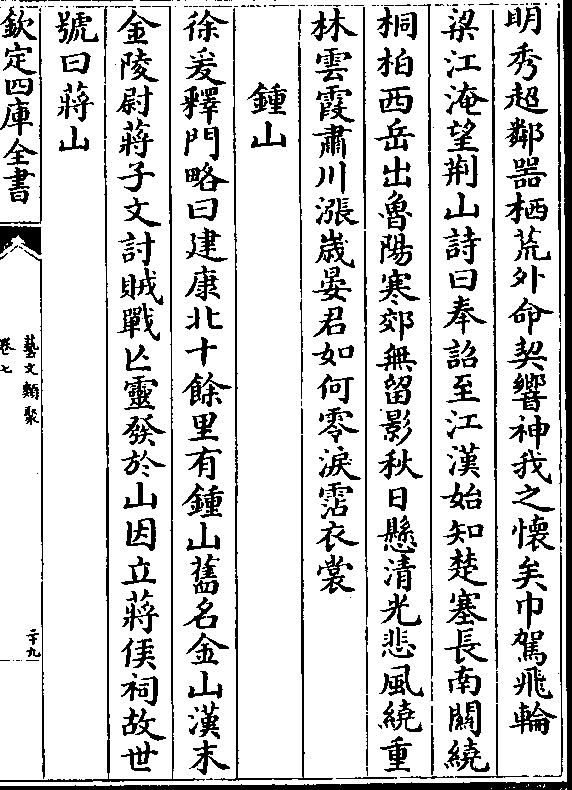 明秀超鄰器栖荒外命契響神我之懐矣巾駕飛輪
梁江淹望荆山詩曰奉詔至江漢始知楚塞長南闗繞
桐柏西岳出魯陽寒郊無留影秋日懸清光悲風繞重
林雲霞肅川漲嵗晏君如何零淚霑衣裳
鍾山
徐爰釋門略曰建康北十餘里有鍾山舊名金山漢末
金陵尉蔣子文討賊戰亡靈發於山因立蔣侯祠故世
號曰蔣山
欽定四庫全書
藝文類聚
卷七
二十九